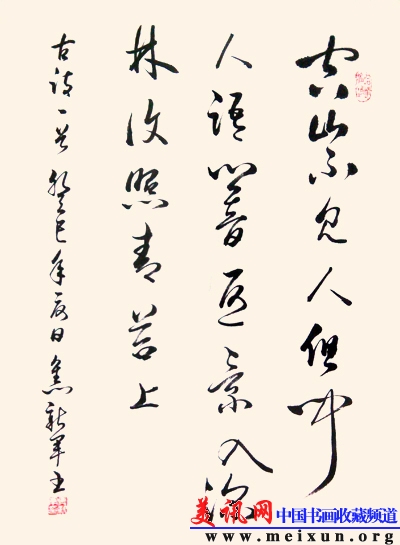 空山不见人但闻
人语响返景入深
林复照青苔上
古诗一首 癸巳年夏日 焦新军书
美讯网 中国书画收藏频道
www.meixun.org